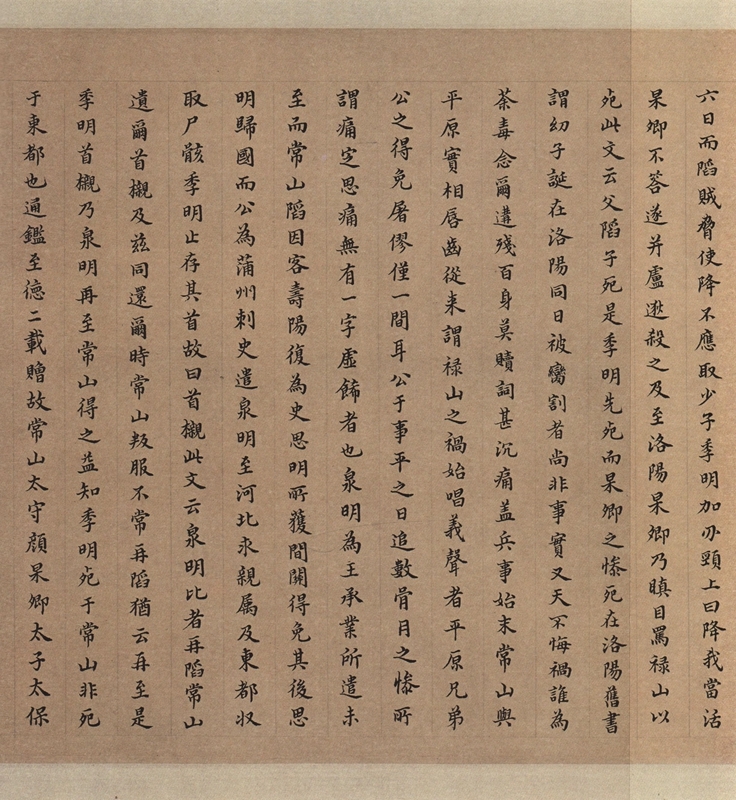 六日而䧟賊脅使降不應取少子季明加刃頸上曰降我當活
杲卿不答遂并盧逖殺之及至洛陽杲卿乃瞋目罵禄山以
死此文云父䧟子死是季明先死而杲卿之慘死在洛陽舊書
謂幼子誕在洛陽同日被臠割者尚非事實又天不悔禍誰為
荼毒念爾遘殘百身莫贖詞甚沉痛蓋兵事始末常山與
平原實相唇齒從来謂禄山之禍始唱義聲者平原兄弟
公之得免屠僇僅一間耳公于事平之日追數骨月之慘所
謂痛定思痛無有一字虛飾者也泉明為王承業所遣未
至而常山䧟因客壽陽復為史思明所獲間關得免其後思
明歸國而公為蒲州刺史遣泉明至河北求親属及東都収
取尸骸季明止存其首故曰首櫬此文云泉明比者再䧟常山
遺爾首櫬及兹同還爾時常山叛服不常再䧟猶云再至是
季明首櫬乃泉明再至常山得之益知季明死于常山非死
于東都也通鑑至徳二載贈故常山太守顔杲卿太子太保